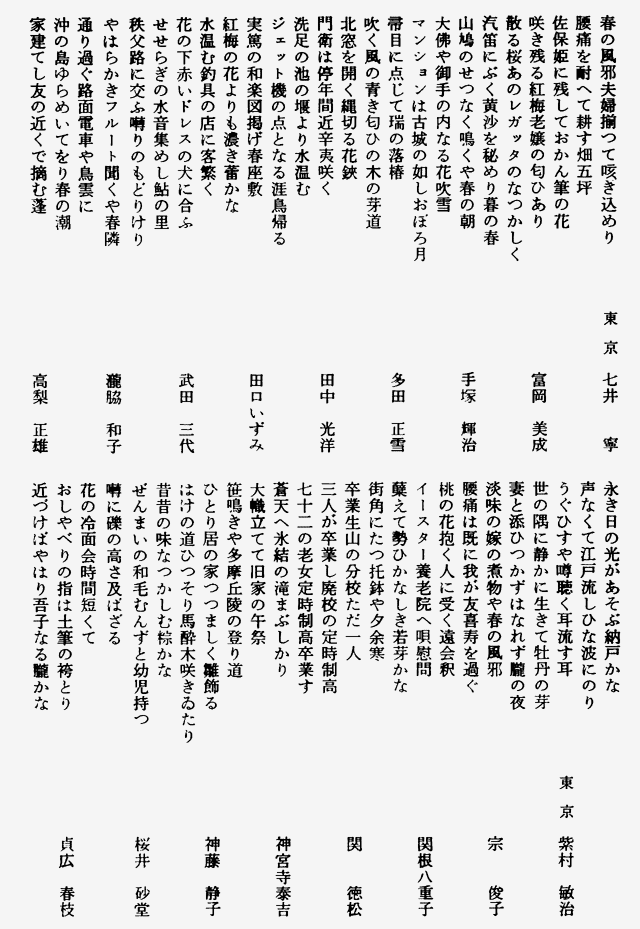 春の風邪夫婦揃つて咳き込めり
東京 七井 寧
腰痛を耐へて耕す畑五坪
佐保姫に残しておかん筆の花
咲き残る紅梅老嬢の匂ひあり
富岡 美成
散る桜あのレガッタのなつかしく
汽笛にぶく黄沙を秘めり暮の春
山鳩のせつなく鳴くや春の朝
手塚 輝治
大佛や御手の内なる花吹雪
マンションは古城の如しおぼろ月
帚目に点じて瑞の落椿
多田 正雪
吹く風の青き匂ひの木の芽道
北窓を開く縄切る花鋏
門衛は停年間近辛夷咲く
田中 光洋
洗足の池の堰より水温む
ジェット機の点となる涯鳥帰る
実篤の和楽図掲げ春座敷
田口いずみ
紅梅の花よりも濃き蕾かな
水温む釣具の店に客繁く
花の下赤いドレスの犬に合ふ
武田 三代
せせらぎの水音集めし鮎の里
秩父路に交ふ囀りのもどりけり
やはらかきフルート聞くや春隣
瀧脇 和子
通り過ぐ路面電車や鳥雲に
沖の島ゆらめいてをり春の潮
家建てし友の近くで摘む蓬
高梨 正雄
永き日の光があそぶ納戸かな
声なくて江戸流しひな波にのり
うぐひすや噂聴く耳流す耳
東京 紫村 敏治
世の隅に静かに生きて牡丹の芽
妻と添ひつかずはなれず朧の夜
淡味の嫁の煮物や春の風邪
宗 俊子
腰痛は既に我が友喜寿を過ぐ
桃の花抱く人に受く遠会釈
イースター養老院へ唄慰問
関根八重子
蘖えて勢ひかなしき若芽かな
街角にたつ托鉢や夕余寒
卒業生山の分校ただ一人
関 徳松
三人が卒業し廃校の定時制高
七十二の老女定時制高卒業す
蒼天へ氷結の滝まぶしかり
神宮寺泰吉
大幟立てて旧家の午祭
笹鳴きや多摩丘陵の登り道
ひとり居の家つつましく雛飾る
神藤 静子
はけの道ひつそり馬酔木咲きゐたり
昔昔の味なつかしむ粽かな
ぜんまいの和毛むんずと幼児持つ
桜井 砂堂
囀に礫の高さ及ばざる
花の冷面会時間短くて
おしやべりの指は土筆の袴とり
貞広 春枝
近づけばやはり吾子なる朧かな